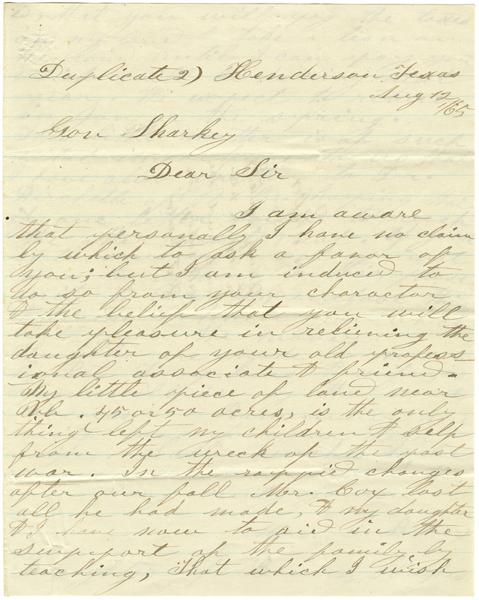 Duplicate 2) Henderson Texas
Aug 12
/65
Gov Sharkey
Dear Sir
I am aware
that personally I have no claim
by which to ask a favor of
you; but I am induced to
do so from your charactor
& the belief that you will
take pleasure in relieving the
daughter of your old profess
ional associate & friend.
My little piece of land near
45 or 50 acres, is the only
thing left my children & self
from the wreck of the past
war. In the rappid changes
after our fall Mr. Cox lost
all he had made, & my daughter
& I have now to aid in the
support of the family by
teaching, That which I wish